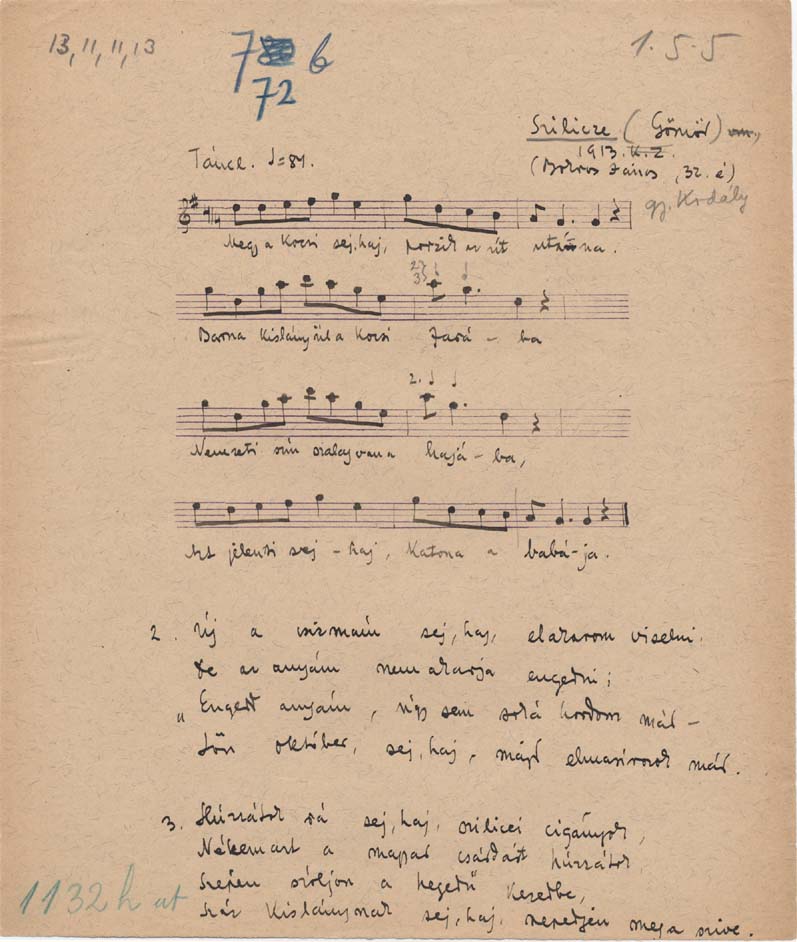 13, 11, 11, 13
7 b
72
1.5-5
Szilicze (Gömör)
1913.
(Bokros János, 32. é)
gy. Kodály
Táncl. ♩=84.
Megy a kocsi sej, haj, porzik az út utánna.
Barna kislány ül a kocsi fará - ba
2.
Nemzeti szín szalag van a hajá - ba,
Azt jelenti sej - haj, katona a babá-ja.
2. Új a csizmám sej, haj, elakarom viselni.
De az anyám nem akarja engedni;
„Engedd anyám, úgy sem soká hordom már -
Jön október, sej, haj, majd elmasírozok már.
3. Húzzátok rá sej, haj, szilicei cigányok,
Nékem azt a magyar csárdást húzzátok
Szépen szóljon a hegedű kezedbe,
Száz kislánynak sej, haj, repedjen meg a szive.
1132 h at